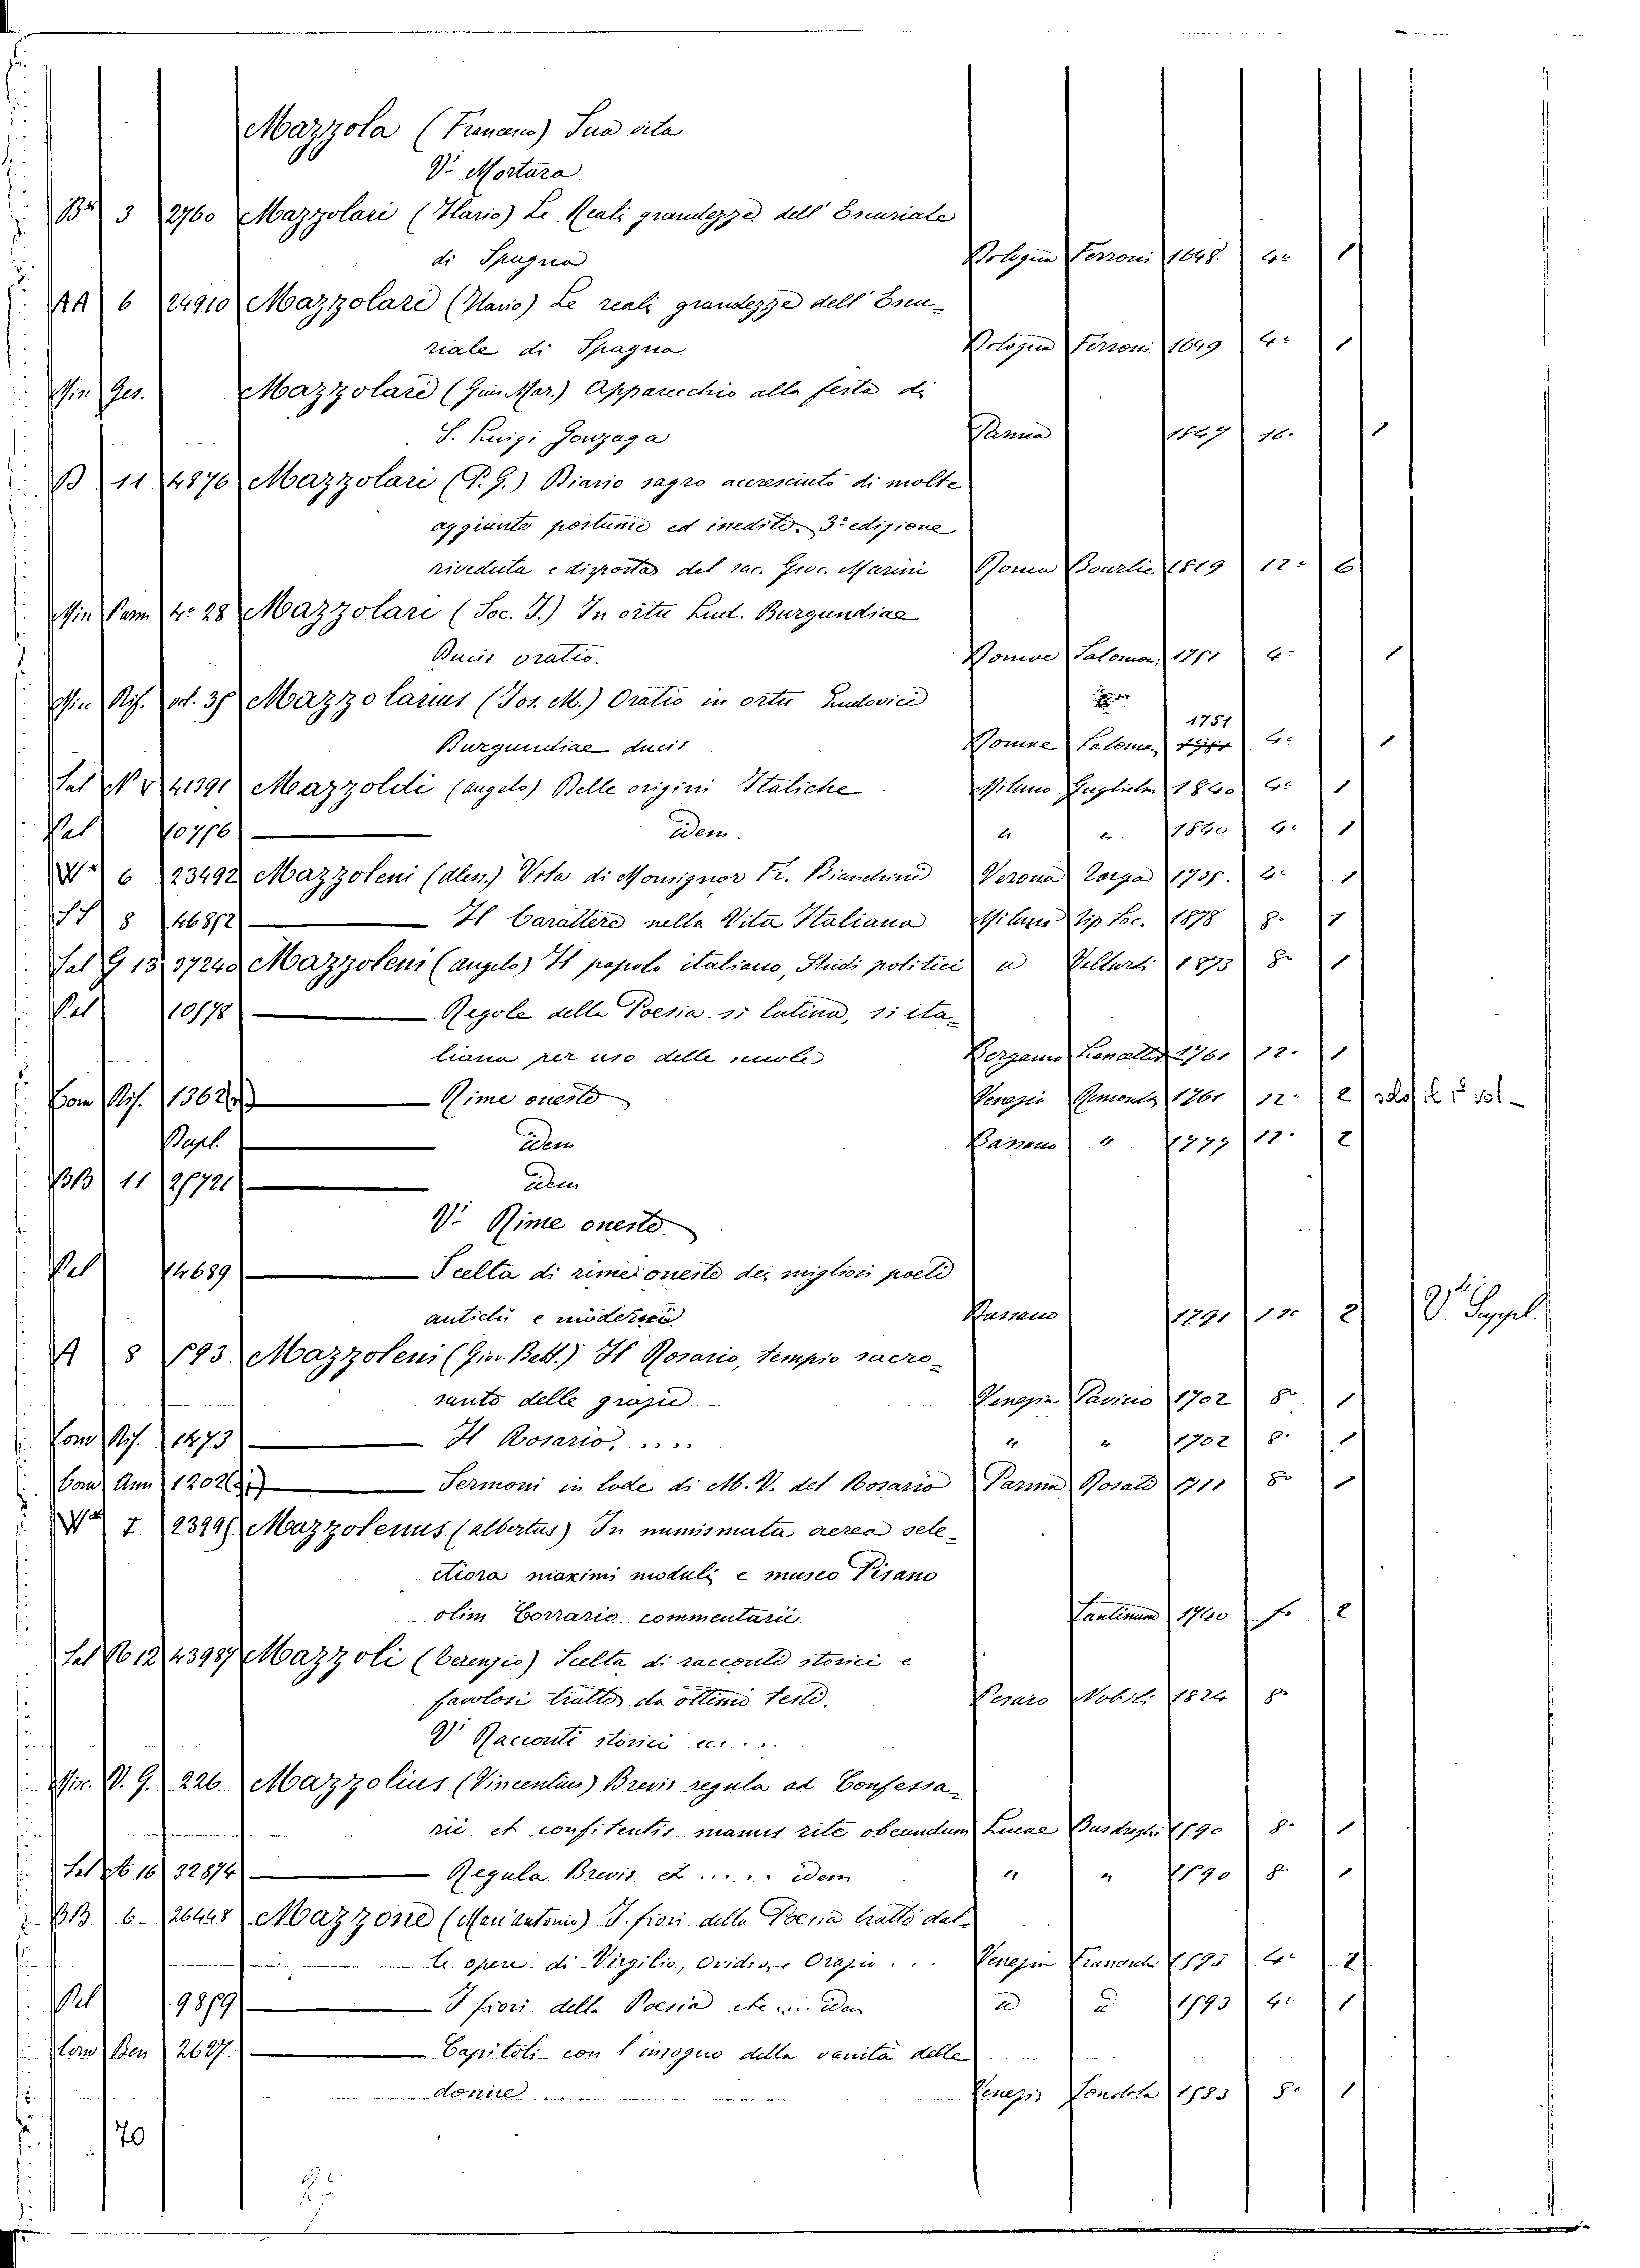 Mazzola (Francesco) Sua vita
V. Mortara
3 2760 Mazzolari (Ilario) Le Reali grandezze dell' Escuriale
di Spagna Bologna Ferroni 1648. 4° 1
AA 6 24910 Mazzolari (Ilario) Le reali grandezze dell' Escu-
riale di Spagna Bologna Ferroni 1649 4° 1
Min Ges. Mazzolari (Gius. Mar.) Apparecchio alla festa di
S. Luigi Gonzaga Parma 1847 16. 1
B 11 4876 Mazzolari (P. G.) Diario sagro accresciuto di molte
aggiunte postume ed inedite. 3ª edizione
riveduta e disposta dal sac. Gioc. Marini Roma Bourlie 1819 12° 6
Min 4. 28 Mazzolari (Soc. J.) In ortu Lud. Burgundiae
Ducis oratio. Romae Salomon. 1751 4° 1
Min Mazzolarius (Jos. M.) Oratio in ortu Ludovici
Burgundiae ducis Romae Salomon 1751 4° 1
Sal 41391 Mazzoldi (angelo) Delle origini Italiche Milano Guglielm 1840 4° 1
Pal 10776 idem. " " 1840 6° 1
6 23492 Mazzoleni (Aless.) Vita di Monsignor Fr. Bianchini Verona Targa 1735. 4° 1
8 46852 Il Carattere nella Vita Italiana Milano tip Soc. 1878 8° 1
Sal G 13 37240 Mazzoleni (angelo) Il popolo italiano, Studi politici " Vallardi 1873 8° 1
Pal 10178 Regole della Poesia si latina, si ita-
liana per uso delle scuole Bergamo 1761 12. 1
Com Rif. Rime oneste Venezia Remond 1761 12. 2
Dupl. idem Bassano " 1777 12. 2
BB 11 25721 idem
V. Rime oneste.
Pal 14689 Scelta di rime oneste dei migliori poeti
antichi e moderni Bassano 1791 12° 2 V. Suppl.
A 8 593 Mazzoleni (Giov. Batt.) Il Rosario, tempio sacro-
santo delle grazie Venezia Pavinio 1702 8° 1
Com Rif. 1473 Il Rosario, .... " " 1702 8. 1
Com Ann Sermoni in lode di M. V. del Rosario Parma Rosati 1711 8° 1
7 Mazzolenus (albertus) In numismata aerea sele-
ctiora maximi moduli e museo Pisano
olim Corrario commentarii 1740 f° 2
Sal 12 43987 Mazzoli (Terenzio) Scelta di racconti storici e
favolosi tratti da ottimi testi. Pesaro Nobili 1824 8°
V. Racconti storici ec....
Min. V. G. 226 Mazzolius (Vincentius) Brevis regula ad Confessa-
rii et confitentis manus rite obeundum Lucae 1590 8. 1
Sal 16 32874 Regula Brevis et ..... idem " " 1590 8. 1
BB 6 26448 Mazzone (Marc'antonio) I fiori della Poesia tratti dal-
le opere di Virgilio, Ovidio, e Orazio ... Venezia 1593 4° 2
Pal 9859 I fiori della Poesia etc ... idem " " 1593 4° 1
Com Ben 2627 Capitoli con l'insogno della vanità delle
donne Venezia 1583 8. 1
70